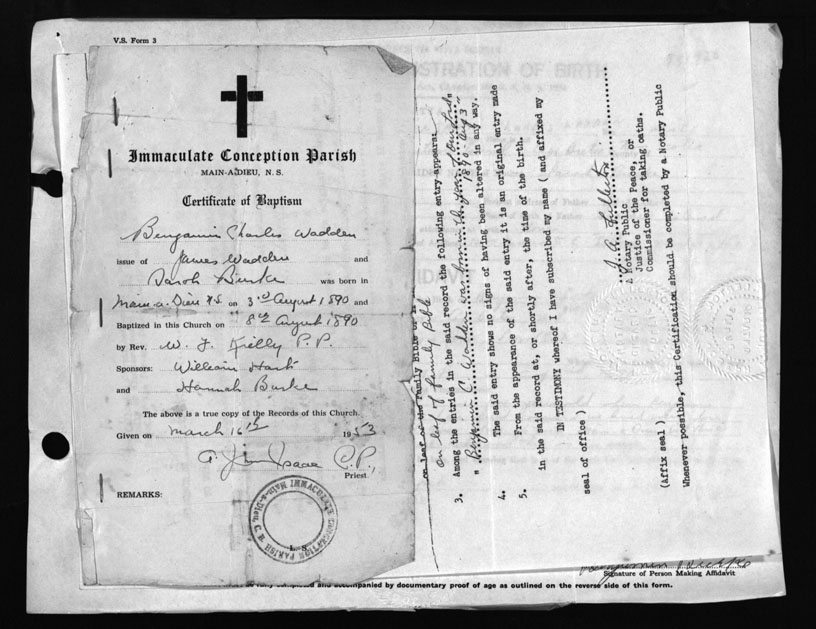 V.S. Form 3
Immaculate Conception Parish
MAIN-A-DIEU, N. S.
Certificate of Baptism
Benjamin Charles Wadden
issue of James Wadden and
Sarah Burke was born in
Main-a-Dieu N.S. on 3rd August 1890 and
Baptized in this Church on 8th August 1890
by Rev. W. J. Kielly P.P.
Sponsors: William Hart
and Hannah Burke
The above is a true copy of the Records of this Church.
Given on March 16th 1953
P.P.,
Priest.
REMARKS:
L. S.
IMMACULATE CONCEPTION PARISH
Main-a-Dieu, C. B.
on leaf of family Bible
3. Among the entries in the said record the following entry appears:
" Benjamin C. Wadden was born in the year of our Lord 1890 - Aug 3 "
4. The said entry shows no signs of having been altered in any way.
5. From the appearance of the said entry it is an original entry made
in the said record at, or shortly after, the time of the birth.
IN TESTIMONY whereof I have subscribed my name ( and affixed my
seal of office )
A Notary Public
Justice of the Peace, or
Commissioner for taking oaths.
(Affix seal )
Whenever possible, this Certification should be completed by a Notary Public
REGISTRATION OF BIRTH
Signature of Person Making Affidavit
accompanied by documentary proof of age as outlined on the reverse side of this form.